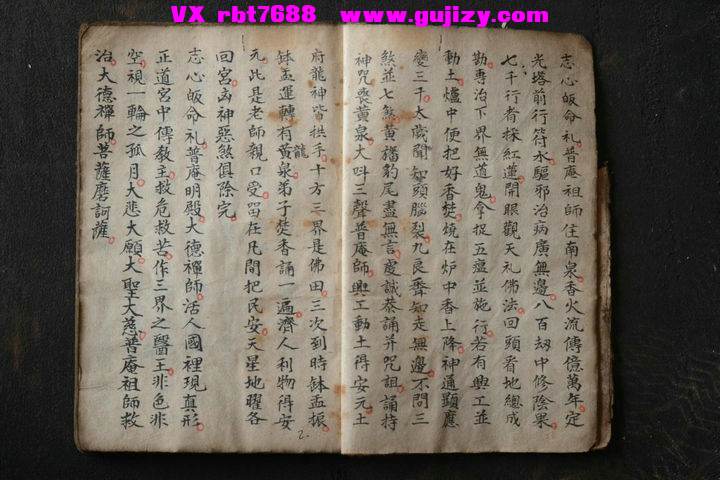 VX rbt7688 www.gujizy.com
志心皈命礼普庵祖師住南泉香火流傳億萬年定
光塔前行符水驅邪治病廣無邊八百劫中修陰果
七千行者採紅蓮開眼觀天礼佛法回頭看地總成
勘專治下界無道鬼拿捉五瘟並施行若有興工並
動土爐中便把好香焚燒在炉中香上降神通顯應
變三千大藏聞知頭腦裂九良聻知走無邊不問三
煞並七煞黄旛豹尾盡無言虔誠恭誦并咒詛誦持
神咒喪黄泉大呌三聲普庵師興工動土得安元土
府龍神皆拱手十方三界是佛田三次到時鉢盂振
鉢盂運轉有黄泉龍弟子焚香誦一遍濟人利物得安
元此是老師親口受畄在凡間把民安天星地曜各
回宮凶神惡煞俱除完
志心皈命礼普庵明殿大德禪師活人國裡現真形
正道宮中傳教主救危救苦作三界之醫王非色非
空視一輪之孤月大悲大願大聖大慈普庵祖師救
治大德禪師菩薩磨訶薩
2.